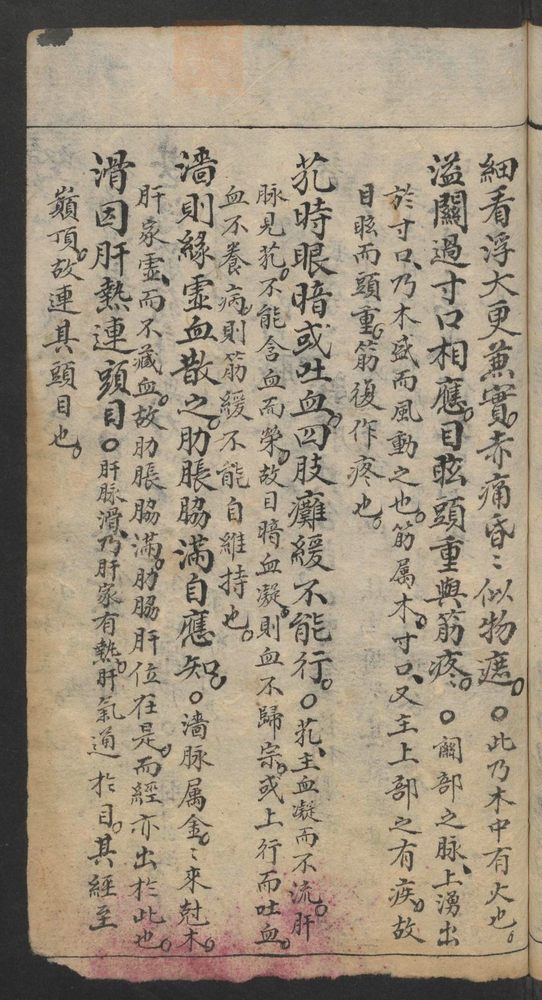 細看浮大更兼實赤痛昏〻似物遮。○此乃木中有火也。
溢關過寸口相應。目眩頭重與筋疼。○關部之脉、上湧出
於寸口、乃木盛而風動之也。筋属木。寸口、又主上部之有疾。故
目眩而頭重。筋復作疼也。
芤時眼暗或吐血。四肢癱緩不能行。○芤、主血凝而不流。肝
脉見芤。不能含血而榮。故目暗血凝。則血不歸宗。或上行而吐血。
血不養病。則筋緩不能自維持也。
濇則緣虛血散之。肋脹脇滿自應知。○濇脉属金。〻來尅木。
肝家虛、而不藏血。故肋脹脇滿。肋脇肝位在是。而經亦出於此也。
滑因肝熱連頭目。○肝脉滑、乃肝家有熱。肝氣通於目。其經至
巔頂。故連其頭目也。